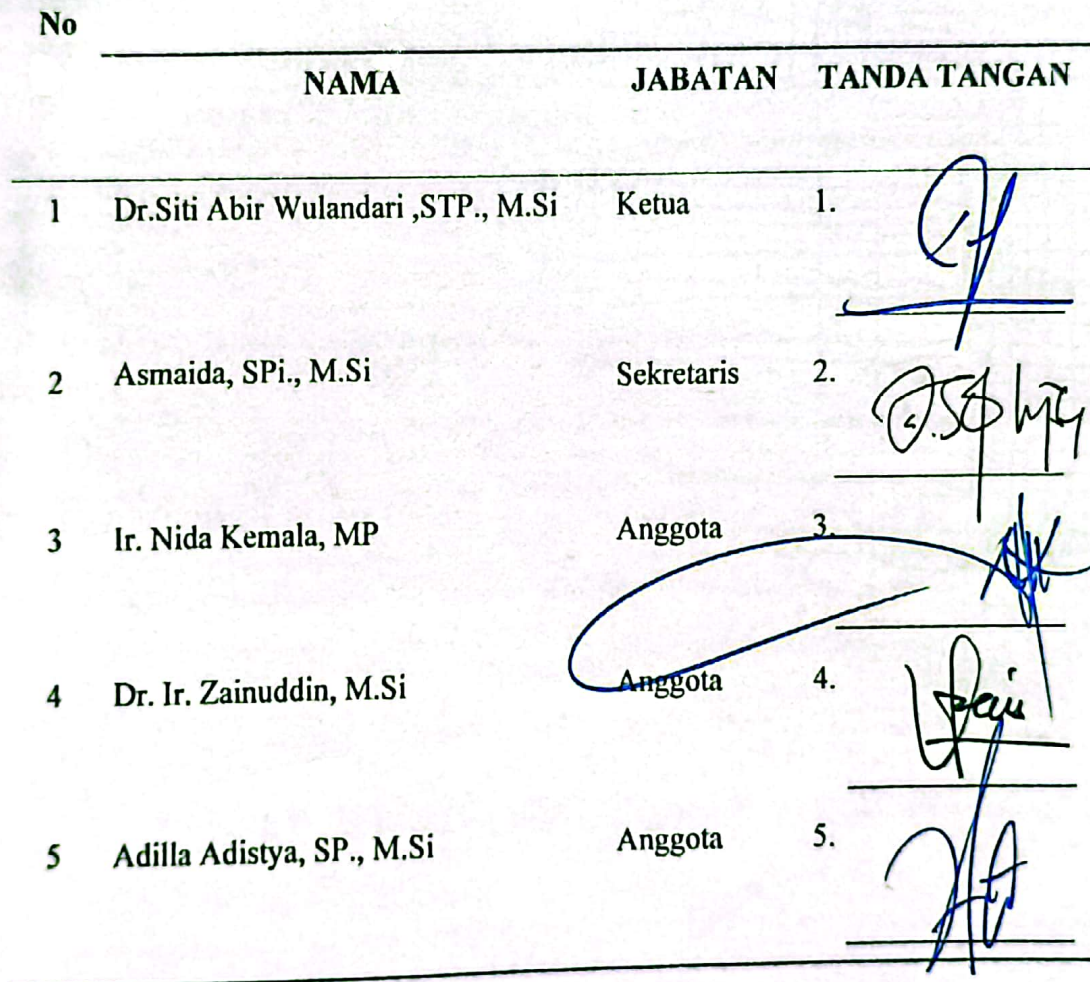 No
NAMA JABATAN TANDA TANGAN
1 Dr.Siti Abir Wulandari ,STP., M.Si Ketua 1.
2 Asmaida, SPi., M.Si Sekretaris 2.
3 Ir. Nida Kemala, MP Anggota 3.
4 Dr. Ir. Zainuddin, M.Si Anggota 4.
5 Adilla Adistya, SP., M.Si Anggota 5.